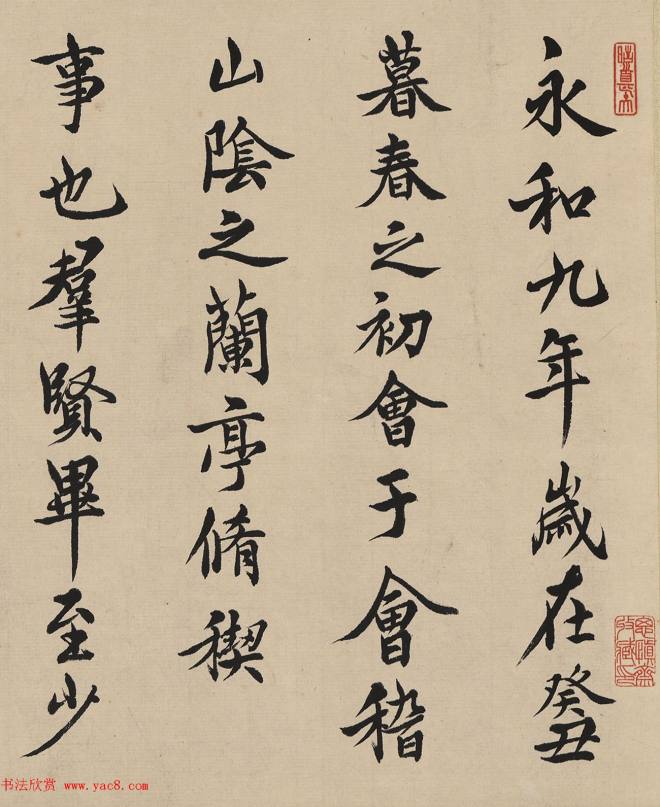 永和九年歲在癸丑
暮春之初會于會稽
山陰之蘭亭脩稧
事也羣賢畢至少
书法欣赏 www.yac8.com